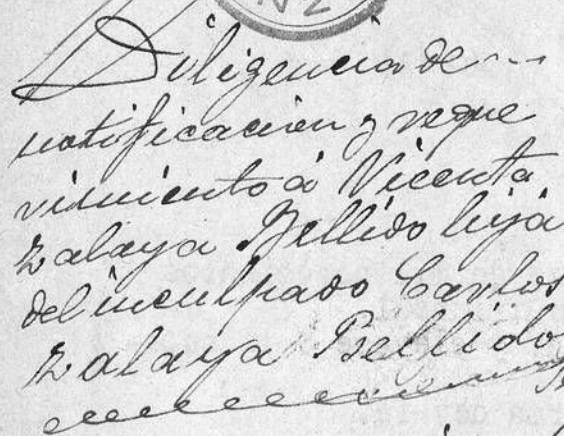 Nº 2
Diligencia de
notificacion y reque
rimiento á Vicenta
Zalaya Bellido hija
del inculpado Carlos
Zalaya Bellido